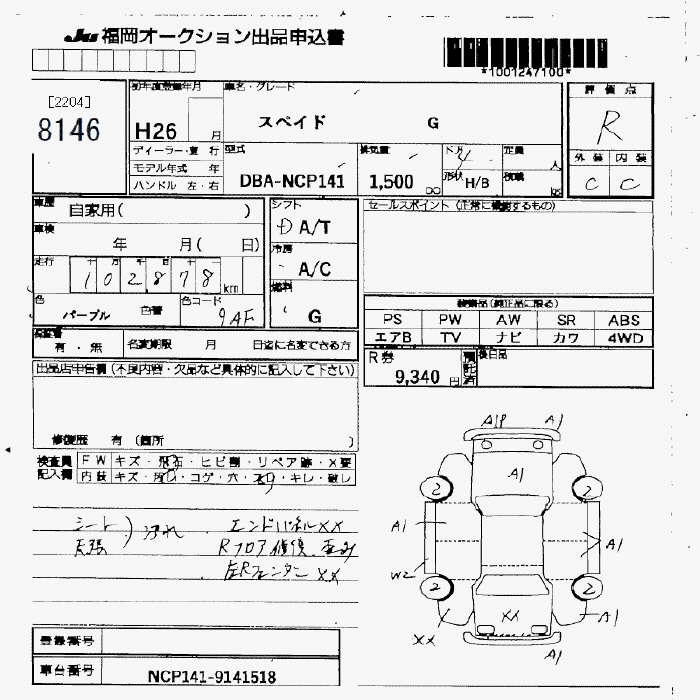 JU 福岡オークション出品申込書
*1001247100*
[2204]
8146
初年度登録年月
H26 月
車名・グレード
スペイド G
評価点
R
外装 内装
C C
ディーラー・並行
モデル年式 年
ハンドル 左・右
型式
DBA-NCP141
排気量
1,500 cc
ドア
4
形状 H/B
定員
人
積載
kg
車歴
自家用( )
車検
年 月( 日)
走行
102878 km
色
パープル 色替
色コード
9AF
シフト
D A/T
冷房
A/C
燃料
G
セールスポイント(正常に機能するもの)
装備品(純正品に限る)
PS PW AW SR ABS
エアB TV ナビ カワ 4WD
保証書
有・無
名変期限 月 日迄に名変できる方
R券
9,340 円
預託済
後日品
出品店申告欄(不良内容・欠品など具体的に記入して下さい)
修復歴 有(箇所 )
検査員記入欄
FW キズ・飛石・ヒビ割・リペア跡・X要
内装 キズ・汚れ・コゲ・穴・スリ・キレ・破し
シート
天張 ) 汚れ
エンドパネルXX
Rフロア修後 歪み
左Rフェンダー XX
A1P A1
A1
2 2
A1 A1
W2
2 2
XX A1
XX
A1
登録番号
車台番号
NCP141-9141518